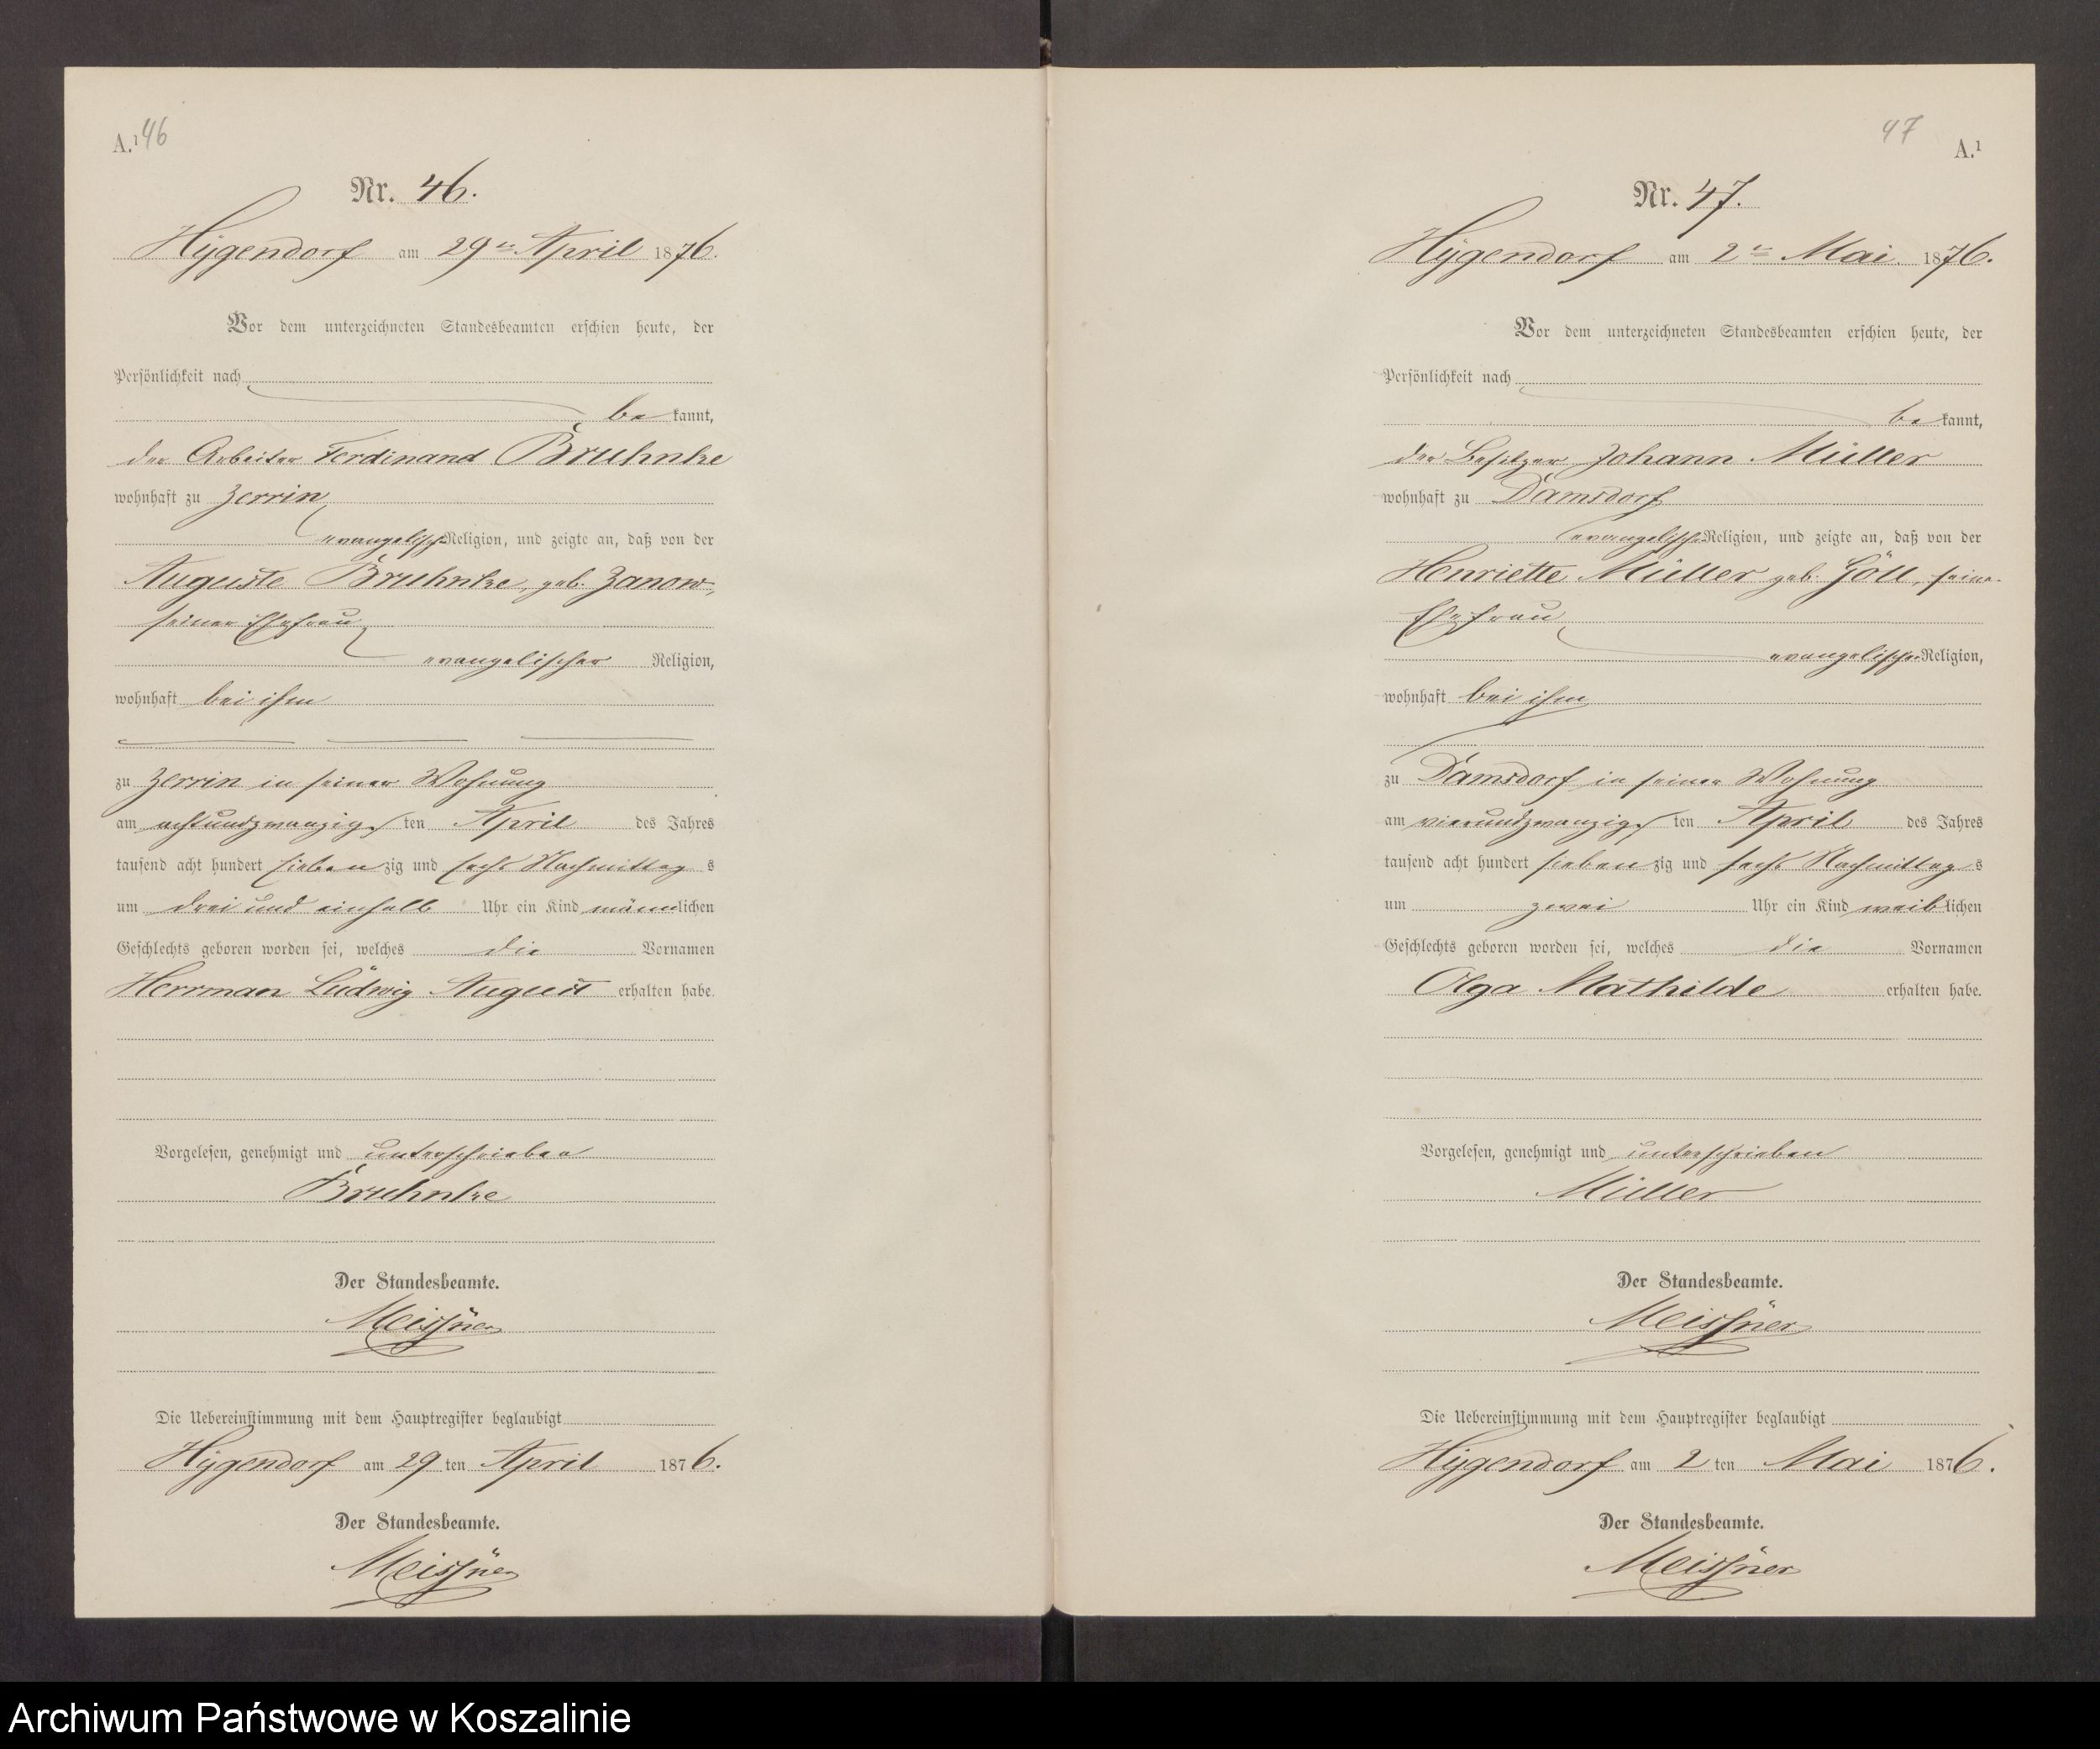 A.¹ 46
Nr. 46.
Hygendorf am 29ten April 1876.
Vor dem unterzeichneten Standesbeamten erschien heute, der
Persönlichkeit nach
be kannt,
der Arbeiter Ferdinand Bruhnke
wohnhaft zu Zerrin
evangelisch Religion, und zeigte an, daß von der
Auguste Bruhnke, geb. Zanow,
seiner Ehefrau
evangelischer Religion,
wohnhaft bei ihm
zu Zerrin in seiner Wohnung
am achtundzwanzigs ten April des Jahres
tausend acht hundert sieben zig und sechs Nachmittag s
um drei und einhalb Uhr ein Kind männlichen
Geschlechts geboren worden sei, welches die Vornamen
Herrman Ludwig August erhalten habe.
Vorgelesen, genehmigt und unterschrieben
Bruhnke
Der Standesbeamte.
Meissner
Die Uebereinstimmung mit dem Hauptregister beglaubigt
Hygendorf am 29 ten April 1876.
Der Standesbeamte.
Meissner
47 A.¹
Nr. 47.
Hygendorf am 2ten Mai 1876.
Vor dem unterzeichneten Standesbeamten erschien heute, der
Persönlichkeit nach
be kannt,
der Besitzer Johann Müller
wohnhaft zu Damsdorf
evangelisch Religion, und zeigte an, daß von der
Henriette Müller geb. Göll, seine
Ehefrau
evangelischer Religion,
wohnhaft bei ihm
zu Damsdorf in seiner Wohnung
am vierundzwanzigs ten April des Jahres
tausend acht hundert sieben zig und sechs Nachmittag s
um zwei Uhr ein Kind weiblichen
Geschlechts geboren worden sei, welches die Vornamen
Olga Mathilde erhalten habe.
Vorgelesen, genehmigt und unterschrieben
Müller
Der Standesbeamte.
Meissner
Die Uebereinstimmung mit dem Hauptregister beglaubigt
Hygendorf am 2 ten Mai 1876.
Der Standesbeamte.
Meissner
Archiwum Państwowe w Koszalinie